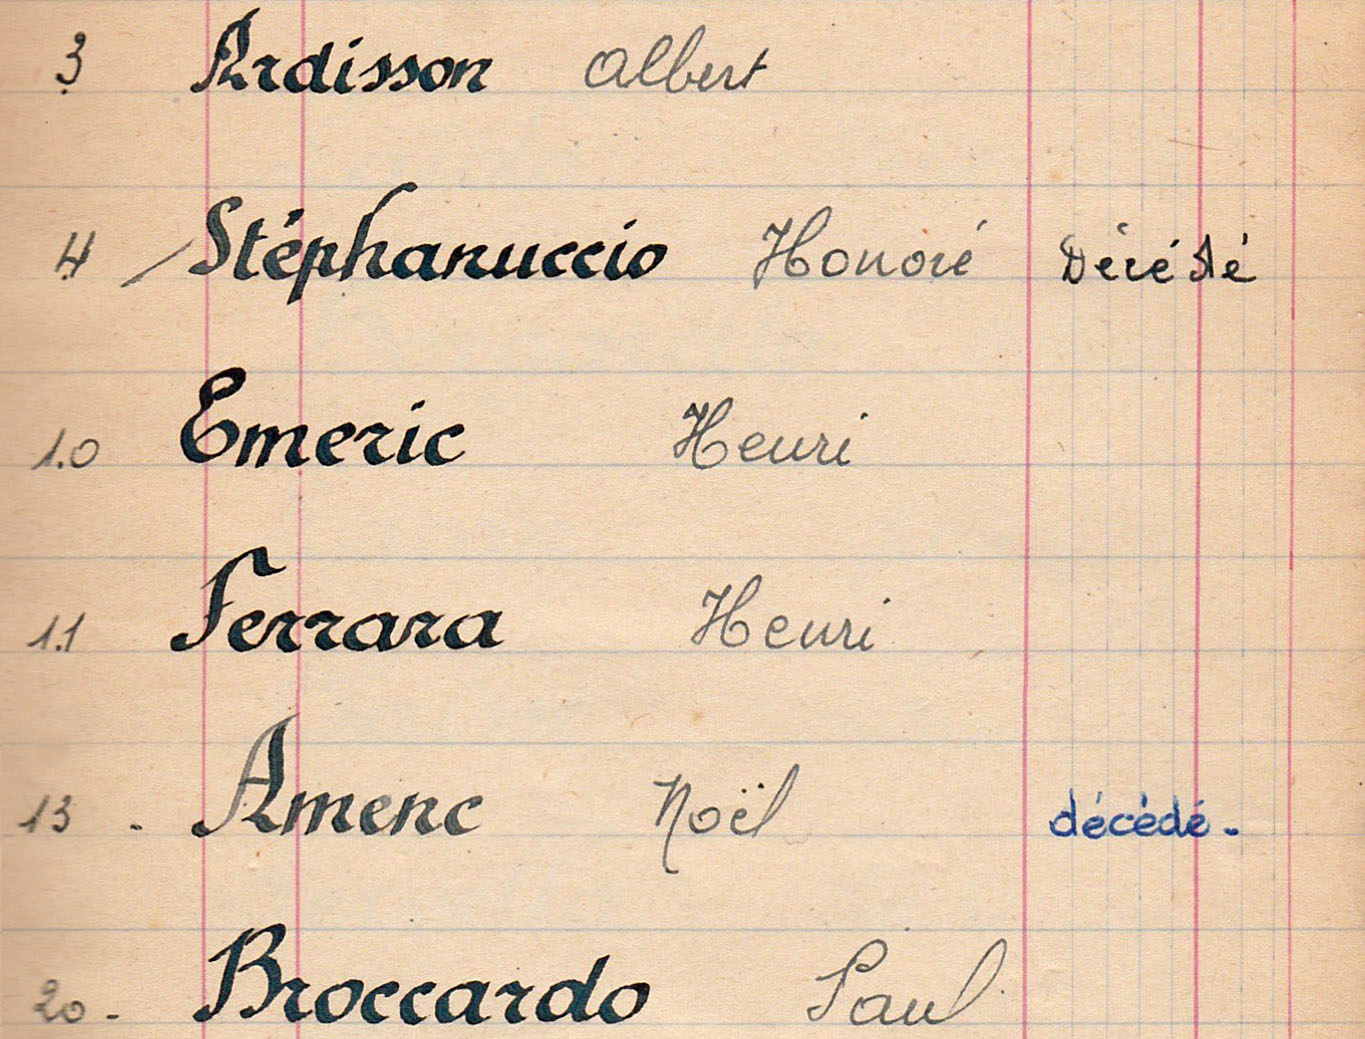 3 Ardisson Albert
4 Stéphanuccio Honoré Décédé
10 Emeric Henri
11 Ferrara Henri
13 - Amenc Noël décédé.
20 - Broccardo Paul